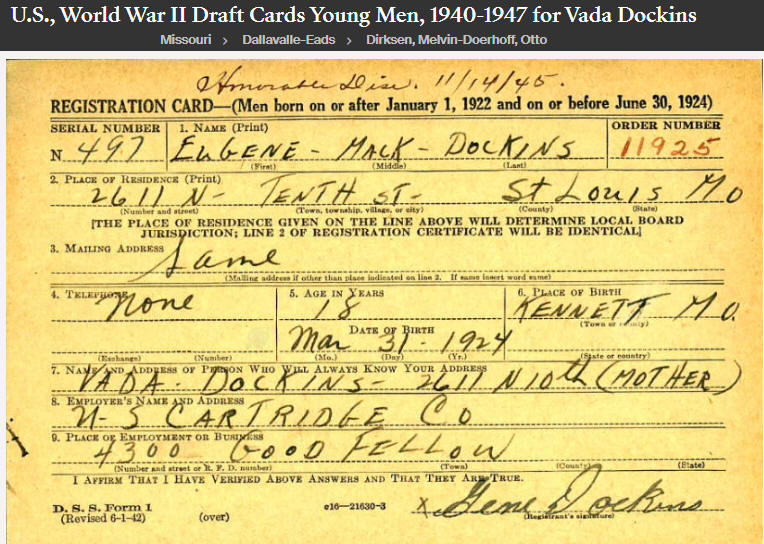 U.S., World War II Draft Cards Young Men, 1940-1947 for Vada Dockins
Missouri > Dallavalle-Eads > Dirksen, Melvin-Doerhoff, Otto
Honorable Disc. 11/14/45.
REGISTRATION CARD—(Men born on or after January 1, 1922 and on or before June 30, 1924)
SERIAL NUMBER 1. NAME (Print) ORDER NUMBER
N 497 EUGENE - MACK - DOCKINS 11925
(First) (Middle) (Last)
2. PLACE OF RESIDENCE (Print)
2611 N- TENTH ST- St Louis MO
(Number and street) (Town, township, village, or city) (County) (State)
[THE PLACE OF RESIDENCE GIVEN ON THE LINE ABOVE WILL DETERMINE LOCAL BOARD
JURISDICTION; LINE 2 OF REGISTRATION CERTIFICATE WILL BE IDENTICAL]
3. MAILING ADDRESS
Same
(Mailing address if other than place indicated on line 2. If same insert word same)
4. TELEPHONE 5. AGE IN YEARS 6. PLACE OF BIRTH
None 18 KENNETT MO.
(Town or county)
DATE OF BIRTH
Mar 31 - 1924
(Exchange) (Number) (Mo.) (Day) (Yr.) (State or country)
7. NAME AND ADDRESS OF PERSON WHO WILL ALWAYS KNOW YOUR ADDRESS
VADA - DOCKINS - 2611 N 10th (MOTHER)
8. EMPLOYER'S NAME AND ADDRESS
U-S CARTRIDGE CO
9. PLACE OF EMPLOYMENT OR BUSINESS
4300 GOOD FELLOW
(Number and street or R. F. D. number) (Town) (County) (State)
I AFFIRM THAT I HAVE VERIFIED ABOVE ANSWERS AND THAT THEY ARE TRUE.
D. S. S. Form 1
(Revised 6-1-42) (over) e16—21630-3 X Gene Dockins
(Registrant's signature)